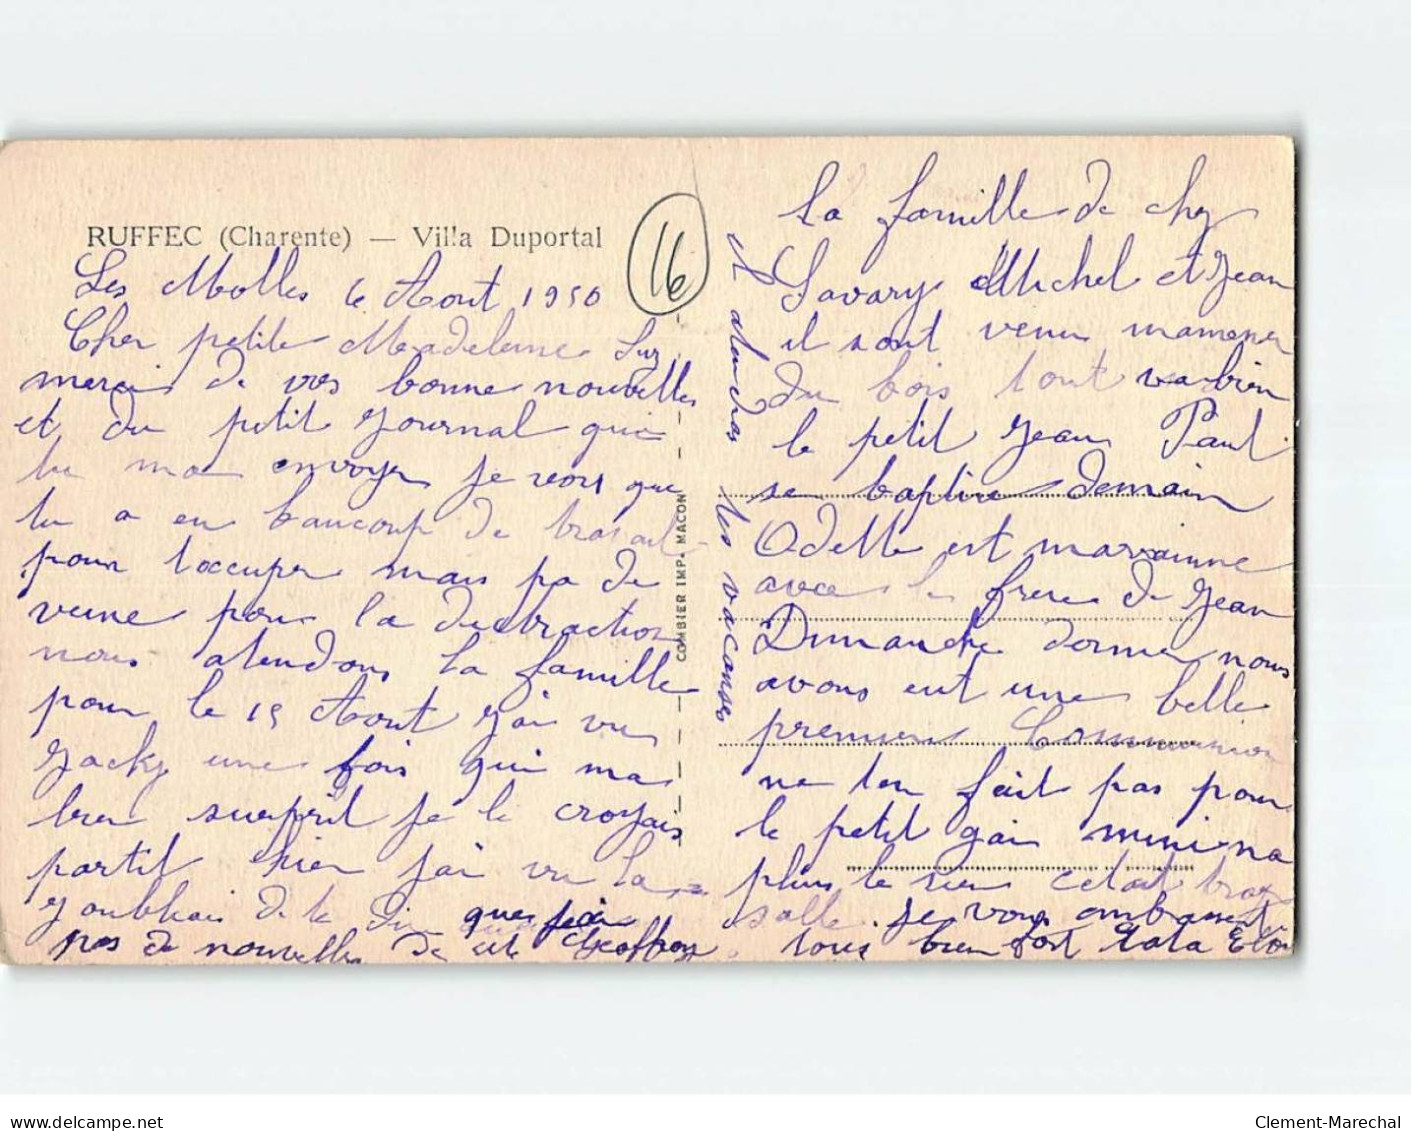 RUFFEC (Charente) — Villa Duportal
16
Les Molles 6 Aout 1950
Cher petite Madeleine Luz
merci de vos bonne nouvelles
et du petit journal que
tu ma envoyer je vois que
tu a eu baucoup de travail
pour t'occuper mais pa de
veine pour la distraction
nous atendons la famille
pour le 15 Aout j'ai vu
Jacky une fois qui ma
bien surprit je le croyais
partit hier j'ai vu la
J'oubliais de te dire que j'ai
pas de nouvelles de
COMBIER IMP. MACON
et atendras
les vacanses
La famille de chez
Savary Michel et Jean
il sont venu mamener
du bois tout va bien
le petit Jean Paul
se baptise demain
Odette est marainne
avec le frere de Jean
Dimanche dernier nous
avons eut une belle
premiere Communion
ne ten fait pas pour
le petit
plus le rien cetait trop
salle. je vous embrasse
tous bien fort tata
Clement-Marechal
www.delcampe.net